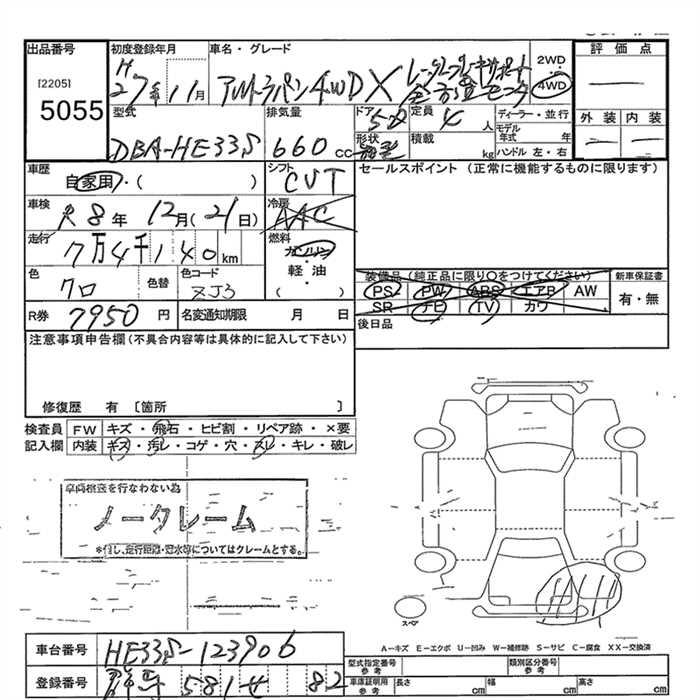 出品番号
[2205]
5055
初度登録年月
H
27年 11月
車名・グレード
アルト ラパン 4WD X レーダーブレーキサポート
全方位モニタ
2WD
・
4WD
評価点
外装 内装
型式
DBA-HE33S
排気量
660 cc
ドア
5D
形状
定員
4 人
積載
kg
ディーラー・並行
モデル年式 年
ハンドル 左・右
車歴
自家用・( )
シフト
CVT
セールスポイント (正常に機能するものに限ります)
車検
R 8年 12月(21日)
冷房
AAC
走行
7万4千140km
燃料
ガソリン
・
軽・油
( )
色
クロ
色替
色コード
ZJ3
装備品(純正品に限り○をつけてください)
PS PW ABS エアB AW
SR ナビ TV カワ
新車保証書
有・無
R券
7950 円
名変通知期限 月 日
後日品
注意事項申告欄(不具合内容等は具体的に記入して下さい)
修復歴 有 〔箇所 〕
検査員
記入欄
FW キズ・飛石・ヒビ割・リペア跡・×要
内装 キズ・汚レ・コゲ・穴・スレ・キレ・破レ
車両検査を行なわない為
ノークレーム
*但し、走行距離・冠水等についてはクレームとする。
スペア
A-キズ E-エクボ U-凹み W-補修跡 S-サビ C-腐食 XX-交換済
車台番号
HE33S-123906
登録番号
581 セ 82
型式指定番号
参考
類別区分番号
参考
車庫証明用
参考
長さ cm 幅 cm 高さ cm